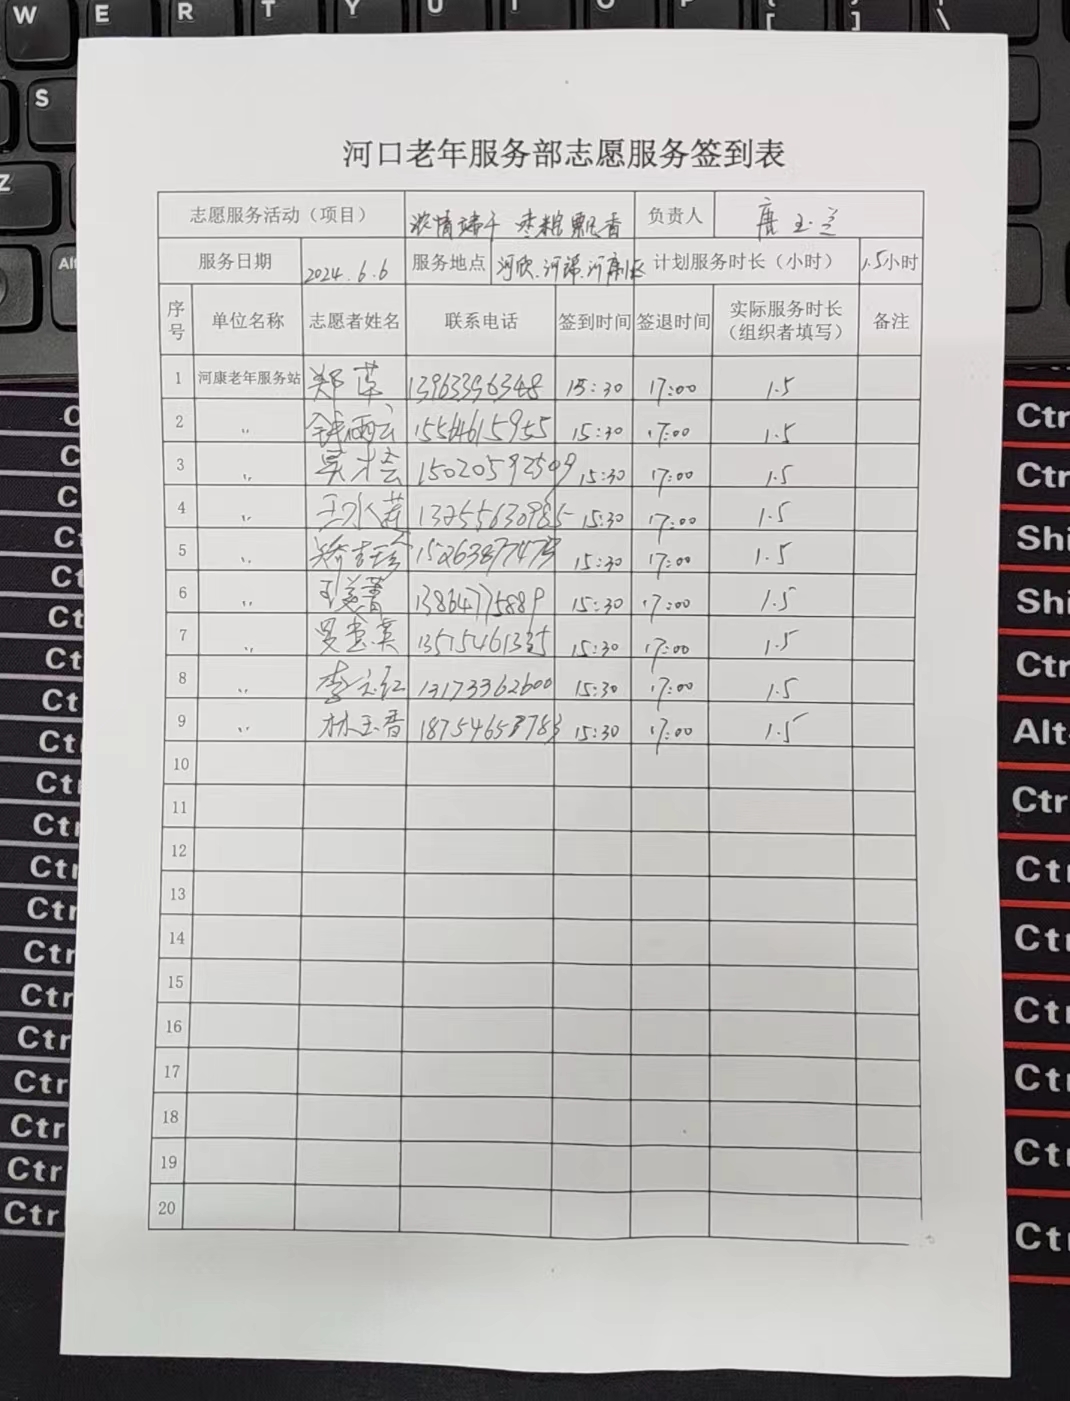 河口老年服务部志愿服务签到表
志愿服务活动（项目） 浓情端午 枣粽飘香 负责人 唐玉兰
服务日期 2024.6.6 服务地点 河欣.河瑞.河康小区 计划服务时长（小时） 1.5小时
序号 单位名称 志愿者姓名 联系电话 签到时间 签退时间 实际服务时长（组织者填写） 备注
1 河康老年服务站 郑草 13963396348 15:30 17:00 1.5
2 〃 15564615955 15:30 17:00 1.5
3 〃 15020592509 15:30 17:00 1.5
4 〃 王水莲 13255630985 15:30 17:00 1.5
5 〃 15:30 17:00 1.5
6 〃 13864775889 15:30 17:00 1.5
7 〃 13515461335 15:30 17:00 1.5
8 〃 李立红 13173362600 15:30 17:00 1.5
9 〃 林玉香 15:30 17:00 1.5
10
11
12
13
14
15
16
17
18
19
20
W E R T Y U I O P { [ } ] | \
S
Z
Alt
Ctr
Ctr
Shi
Shi
Ctr
Alt-
Ctr
Ctr
Ctr
Ctr
Ctr
Ctr
Ctr